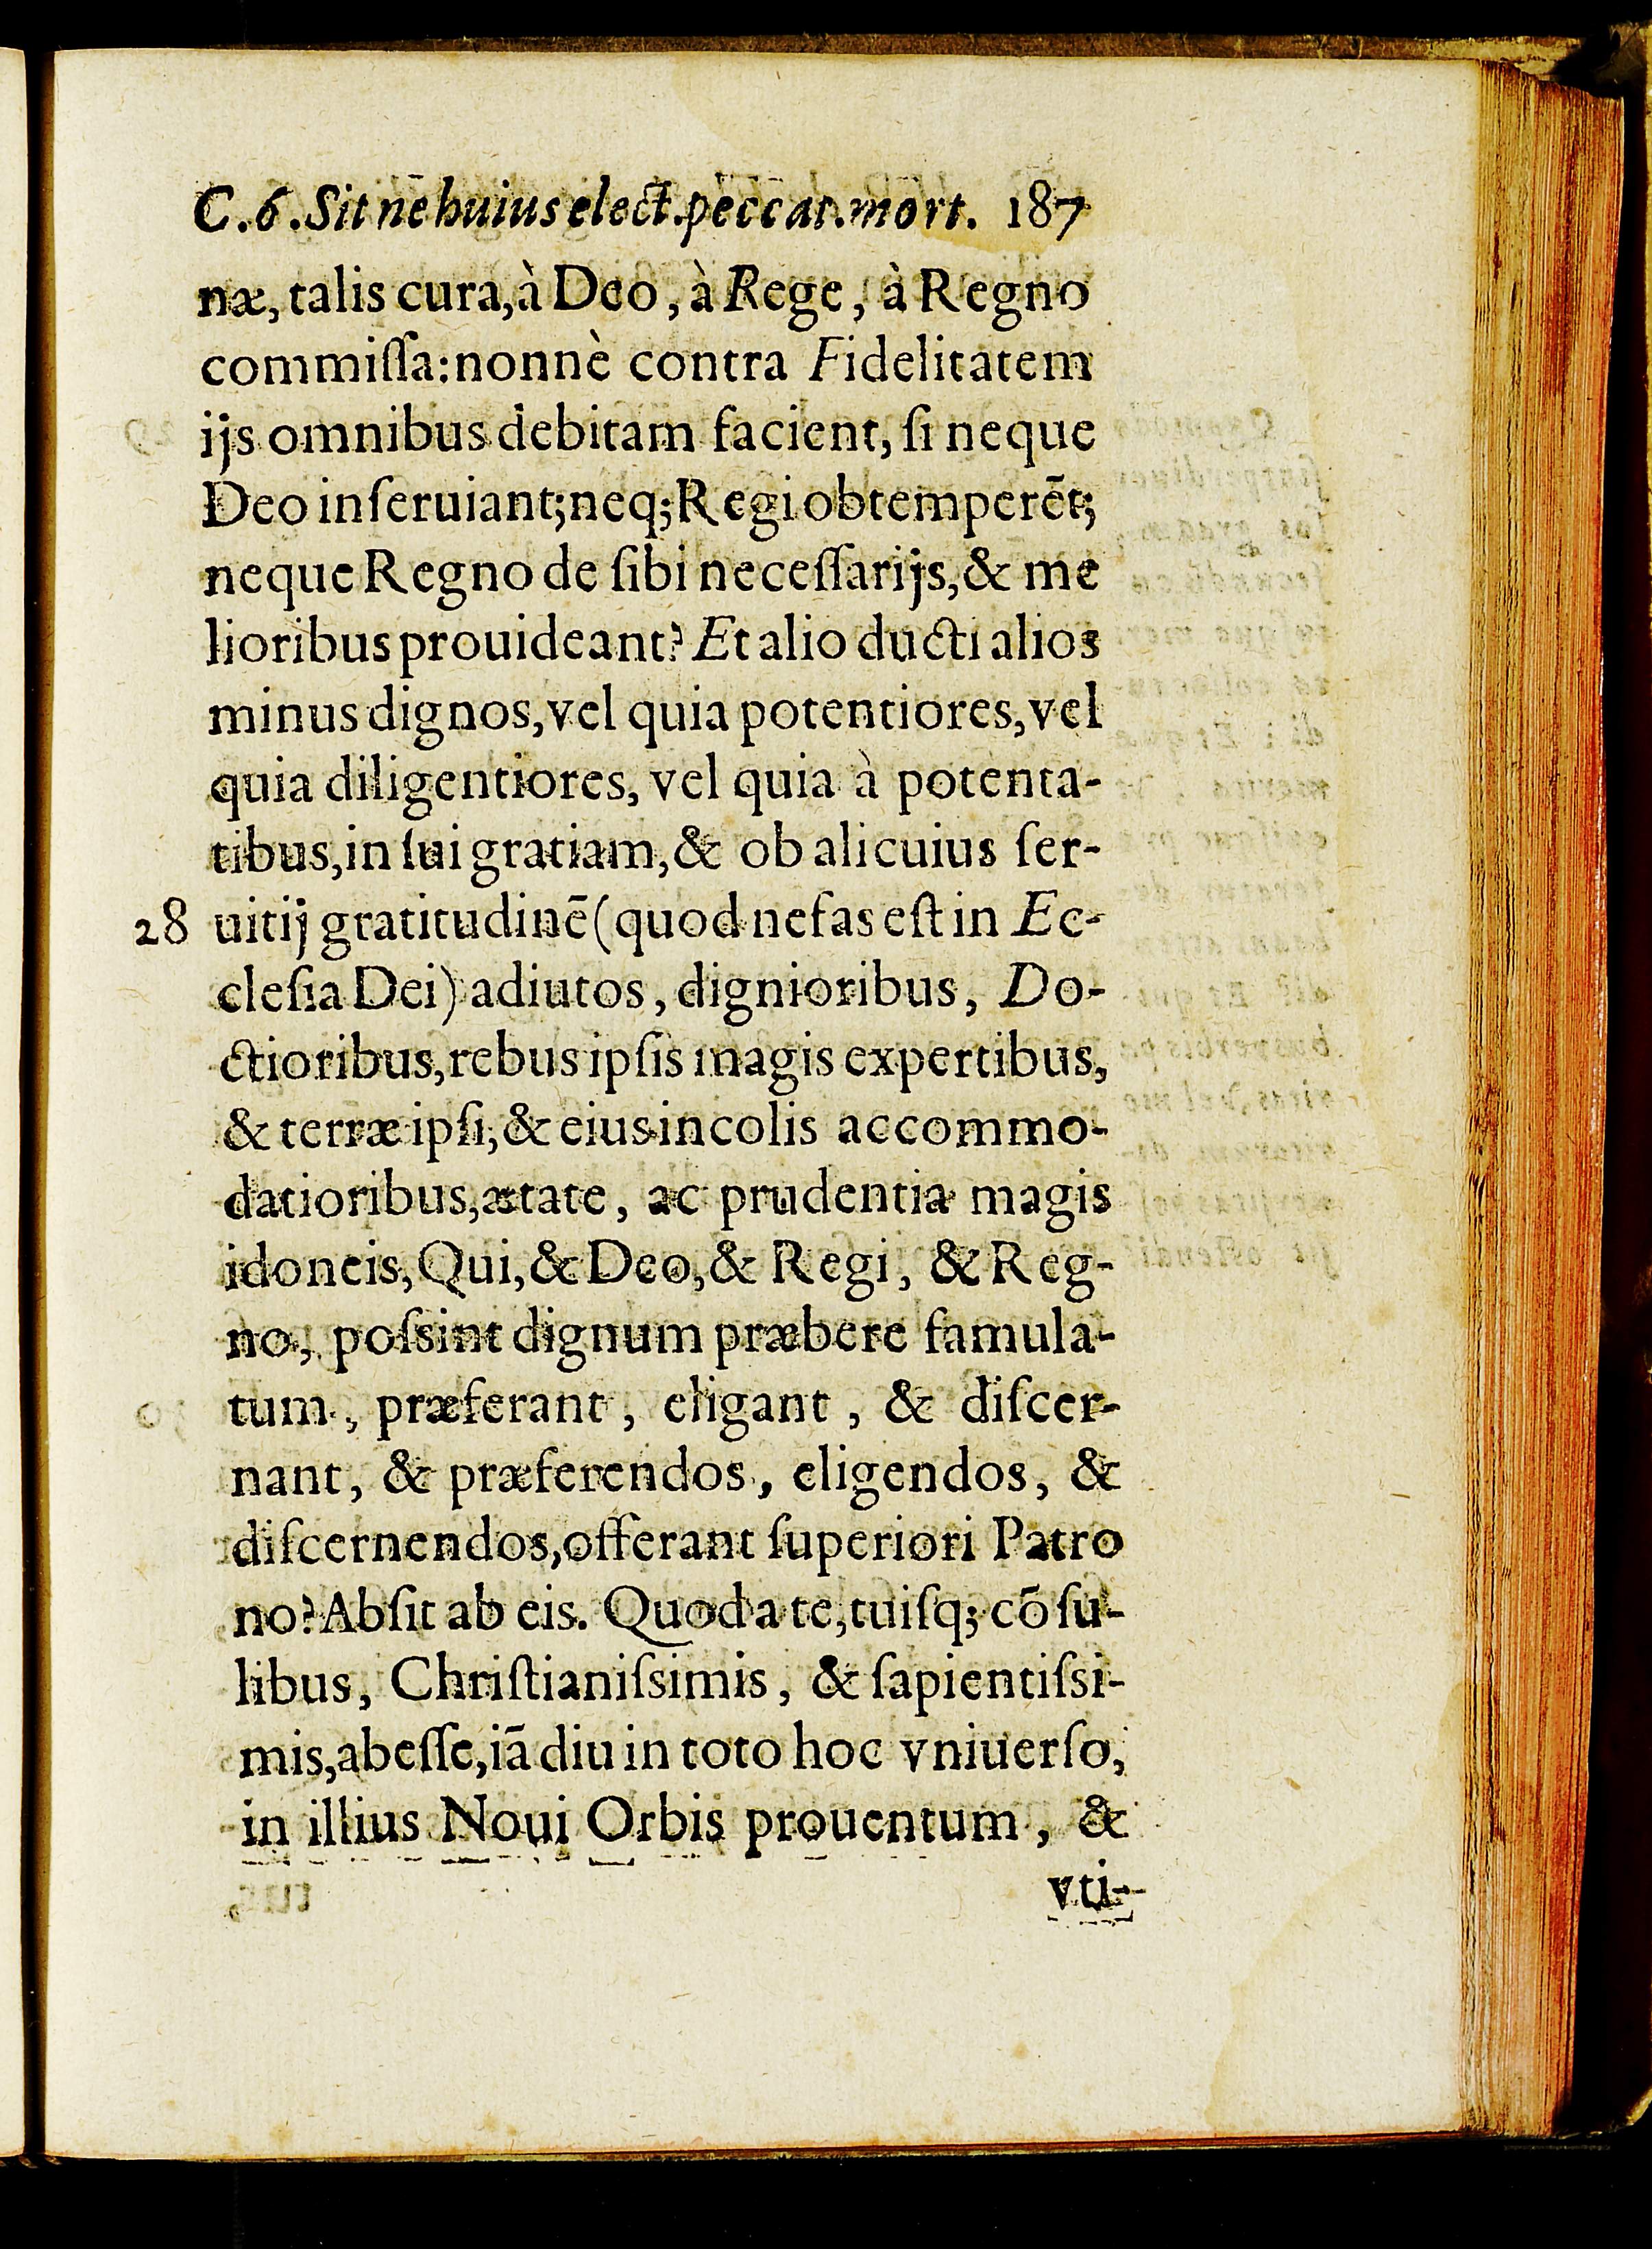 C.6.Sit ne huius elect.peccat.mort. 187
næ, talis cura,à Deo, à Rege, à Regno
commiſſa:nonnè contra Fidelitatem
ijs omnibus debitam facient, ſi neque
Deo inſeruiant;neq;Regi obtemperēt;
neque Regno de ſibi neceſſarijs,& me
lioribus prouideant? Et alio ducti alios
minus dignos,vel quia potentiores,vel
quia diligentiores, vel quia à potenta-
tibus,in ſui gratiam,& ob alicuius ſer-
28 uitij gratitudinē(quod nefas eſt in Ec-
cleſia Dei) adiutos, dignioribus, Do-
ctioribus,rebus ipſis magis expertibus,
& terræ ipſi,& eius incolis accommo-
datioribus,ætate, ac prudentia magis
idoneis, Qui,& Deo,& Regi, & Reg-
no, poſsint dignum præbere famula-
tum, præferant, eligant, & diſcer-
nant, & præferendos, eligendos, &
diſcernendos,offerant ſuperiori Patro
no? Abſit ab eis. Quod a te,tuiſq; cōſu-
libus, Chriſtianiſsimis, & ſapientiſsi-
mis,abeſſe,iā diu in toto hoc vniuerſo,
in illius Noui Orbis prouentum, &
vti-